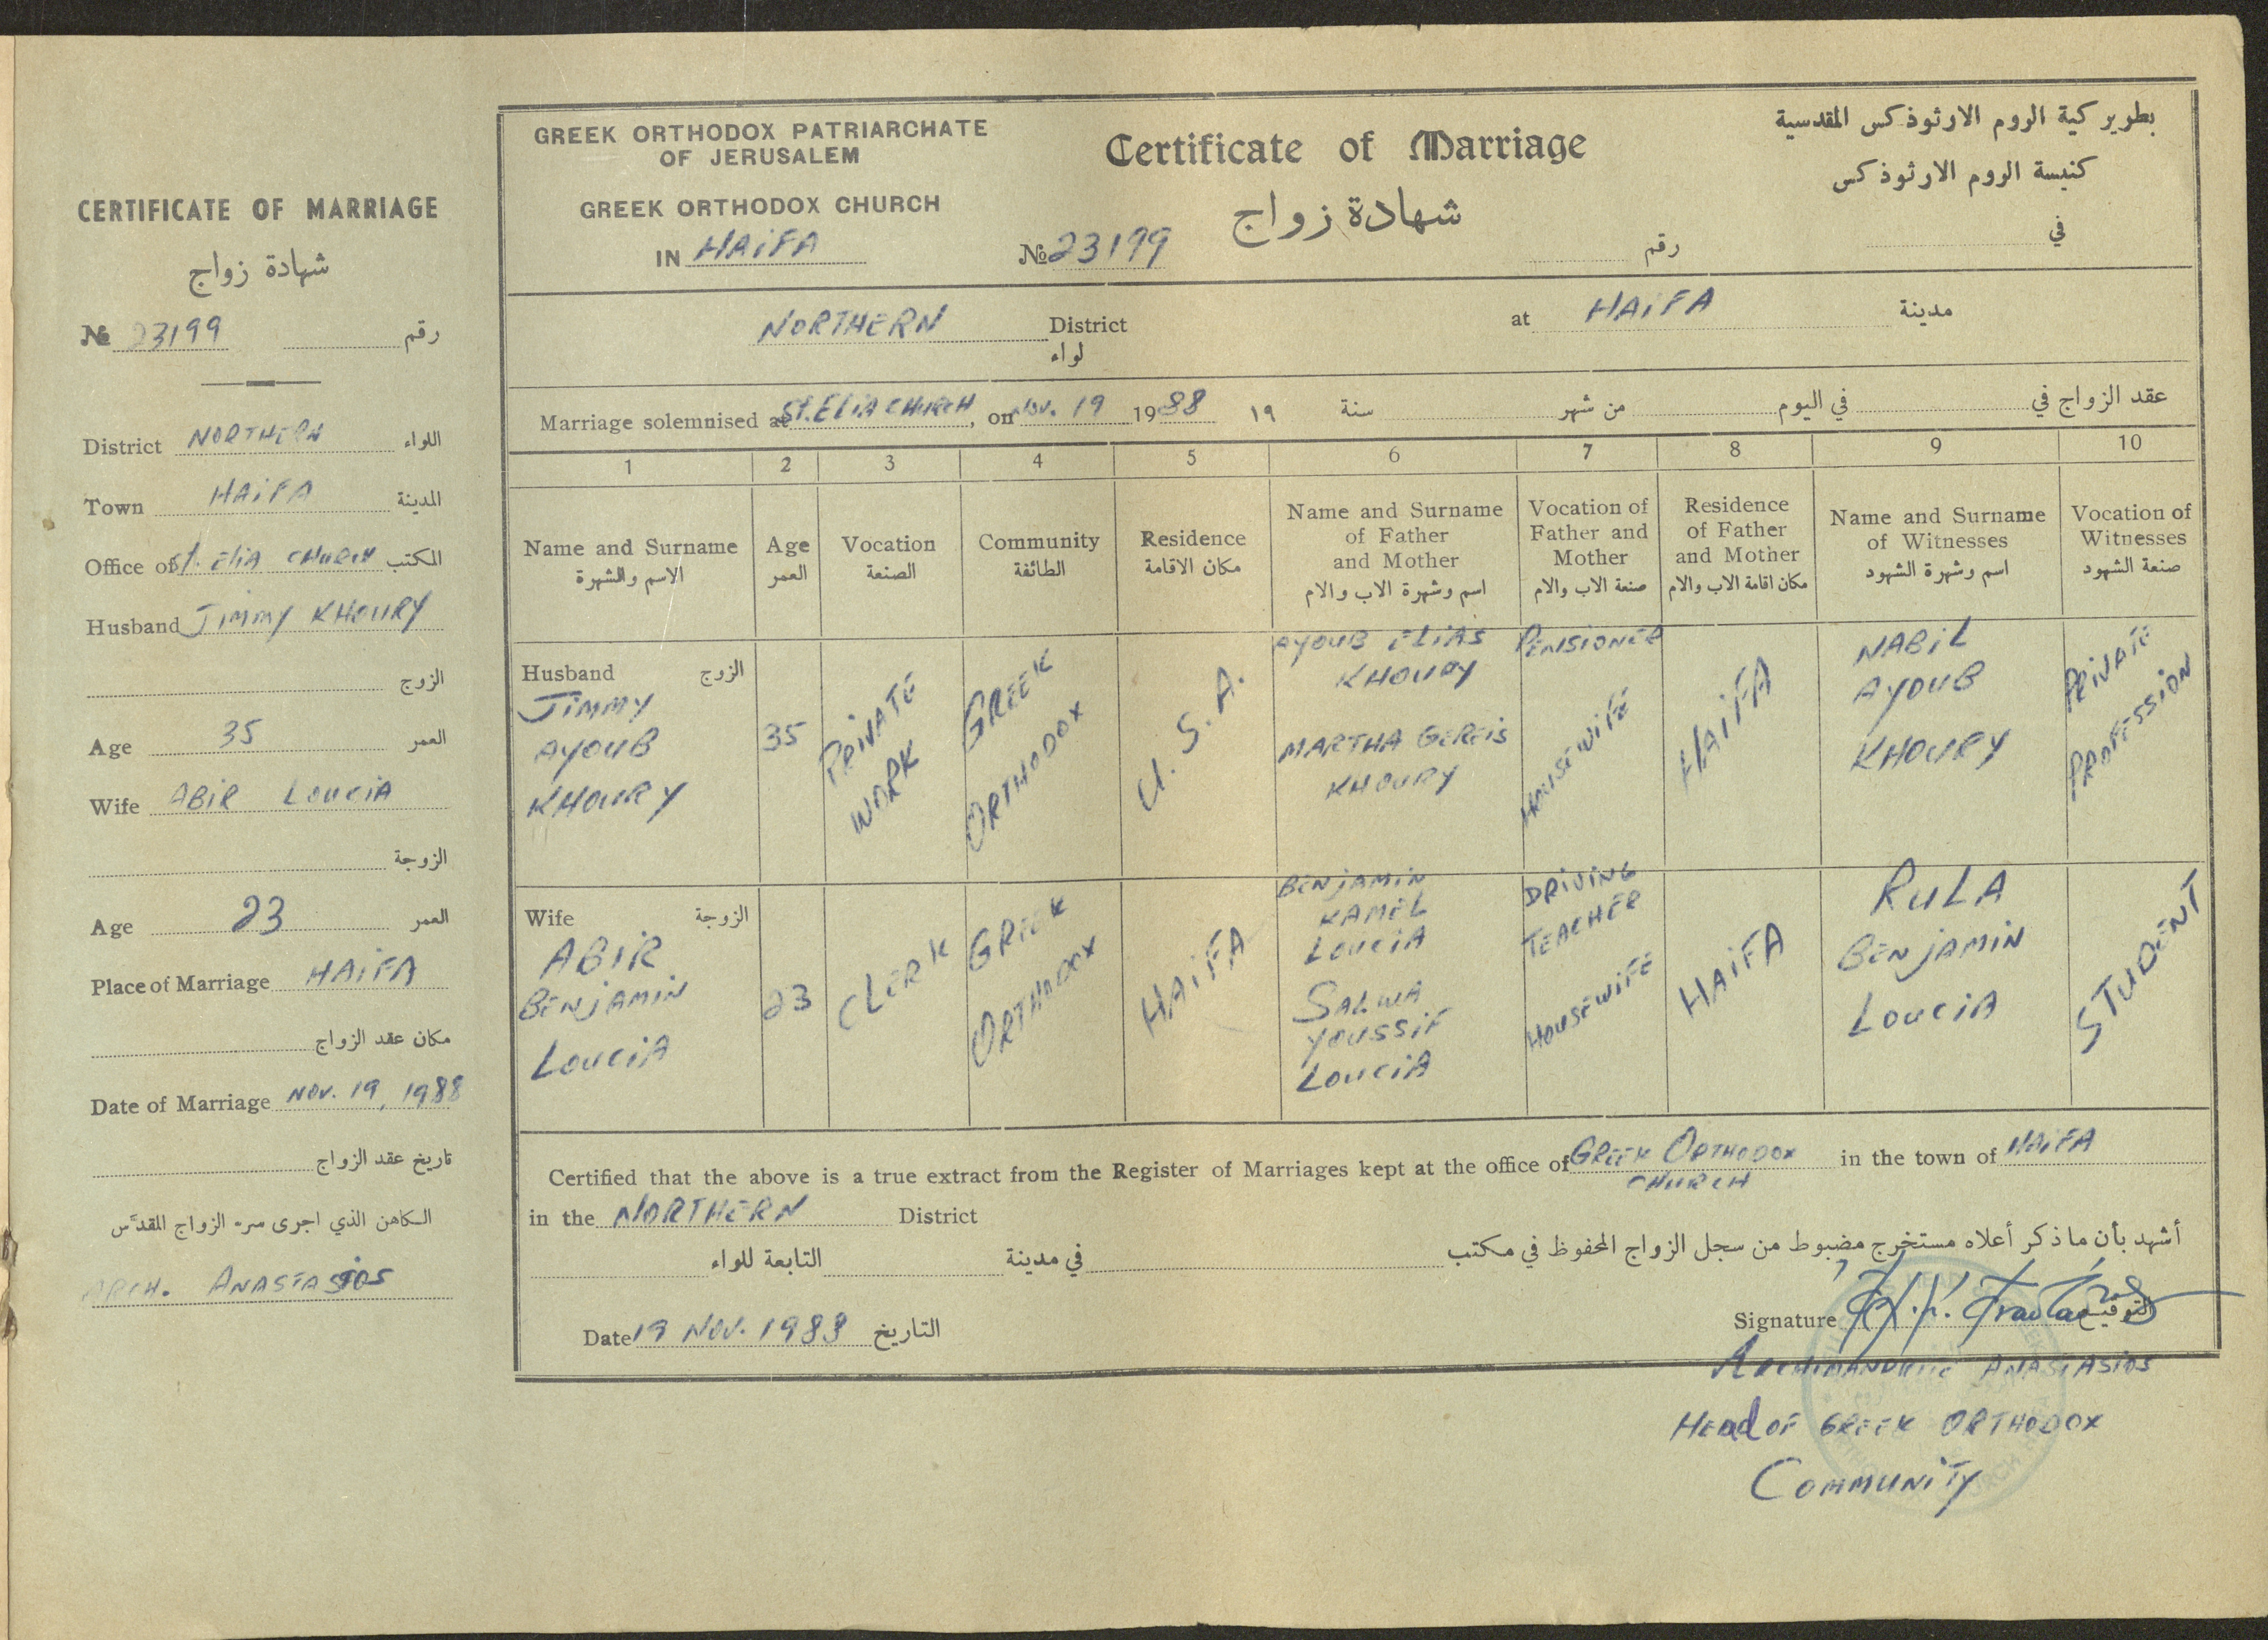 CERTIFICATE OF MARRIAGE
شهادة زواج
№ 23199 رقم
District NORTHERN اللواء
Town HAIFA المدينة
Office of St. ELIA CHURCH المكتب
Husband JIMMY KHOURY
الزوج
Age 35 العمر
Wife ABIR LOUCIA
الزوجة
Age 23 العمر
Place of Marriage HAIFA
مكان عقد الزواج
Date of Marriage NOV. 19, 1988
تاريخ عقد الزواج
الكاهن الذي اجرى سر الزواج المقدس
ARCH. ANASTASIOS
GREEK ORTHODOX PATRIARCHATE
OF JERUSALEM
GREEK ORTHODOX CHURCH
IN HAIFA
Certificate of Marriage
شهادة زواج
№ 23199
رقم
بطريركية الروم الارثوذكس المقدسية
كنيسة الروم الارثوذكس
في
NORTHERN District
لواء
at HAIFA مدينة
Marriage solemnised at St. ELIA CHURCH, on NOV. 19 1988
عقد الزواج في في اليوم من شهر سنة ١٩
1 2 3 4 5 6 7 8 9 10
Name and Surname
الاسم والشهرة
Age
العمر
Vocation
الصنعة
Community
الطائفة
Residence
مكان الاقامة
Name and Surname
of Father
and Mother
اسم وشهرة الاب والام
Vocation of
Father and
Mother
صنعة الاب والام
Residence
of Father
and Mother
مكان اقامة الاب والام
Name and Surname
of Witnesses
اسم وشهرة الشهود
Vocation of
Witnesses
صنعة الشهود
Husband الزوج
JIMMY
AYOUB
KHOURY
35
PRIVATE
WORK
GREEK
ORTHODOX
U. S. A.
AYOUB ELIAS
KHOURY
MARTHA GEREIS
KHOURY
PENSIONER
HOUSEWIFE
HAIFA
NABIL
AYOUB
KHOURY
PRIVATE
PROFESSION
Wife الزوجة
ABIR
BENJAMIN
LOUCIA
23
CLERK
GREEK
ORTHODOX
HAIFA
BENJAMIN
KAMEL
LOUCIA
SALWA
YOUSSIF
LOUCIA
DRIVING
TEACHER
HOUSEWIFE
HAIFA
RULA
BENJAMIN
LOUCIA
STUDENT
Certified that the above is a true extract from the Register of Marriages kept at the office of GREEK ORTHODOX CHURCH in the town of HAIFA
in the NORTHERN District
أشهد بأن ما ذكر أعلاه مستخرج مضبوط من سجل الزواج المحفوظ في مكتب في مدينة التابعة للواء
Date 19 NOV. 1988 التاريخ
Signature التوقيع
ARCHIMANDRITE ANASTASIOS
HEAD OF GREEK ORTHODOX
COMMUNITY